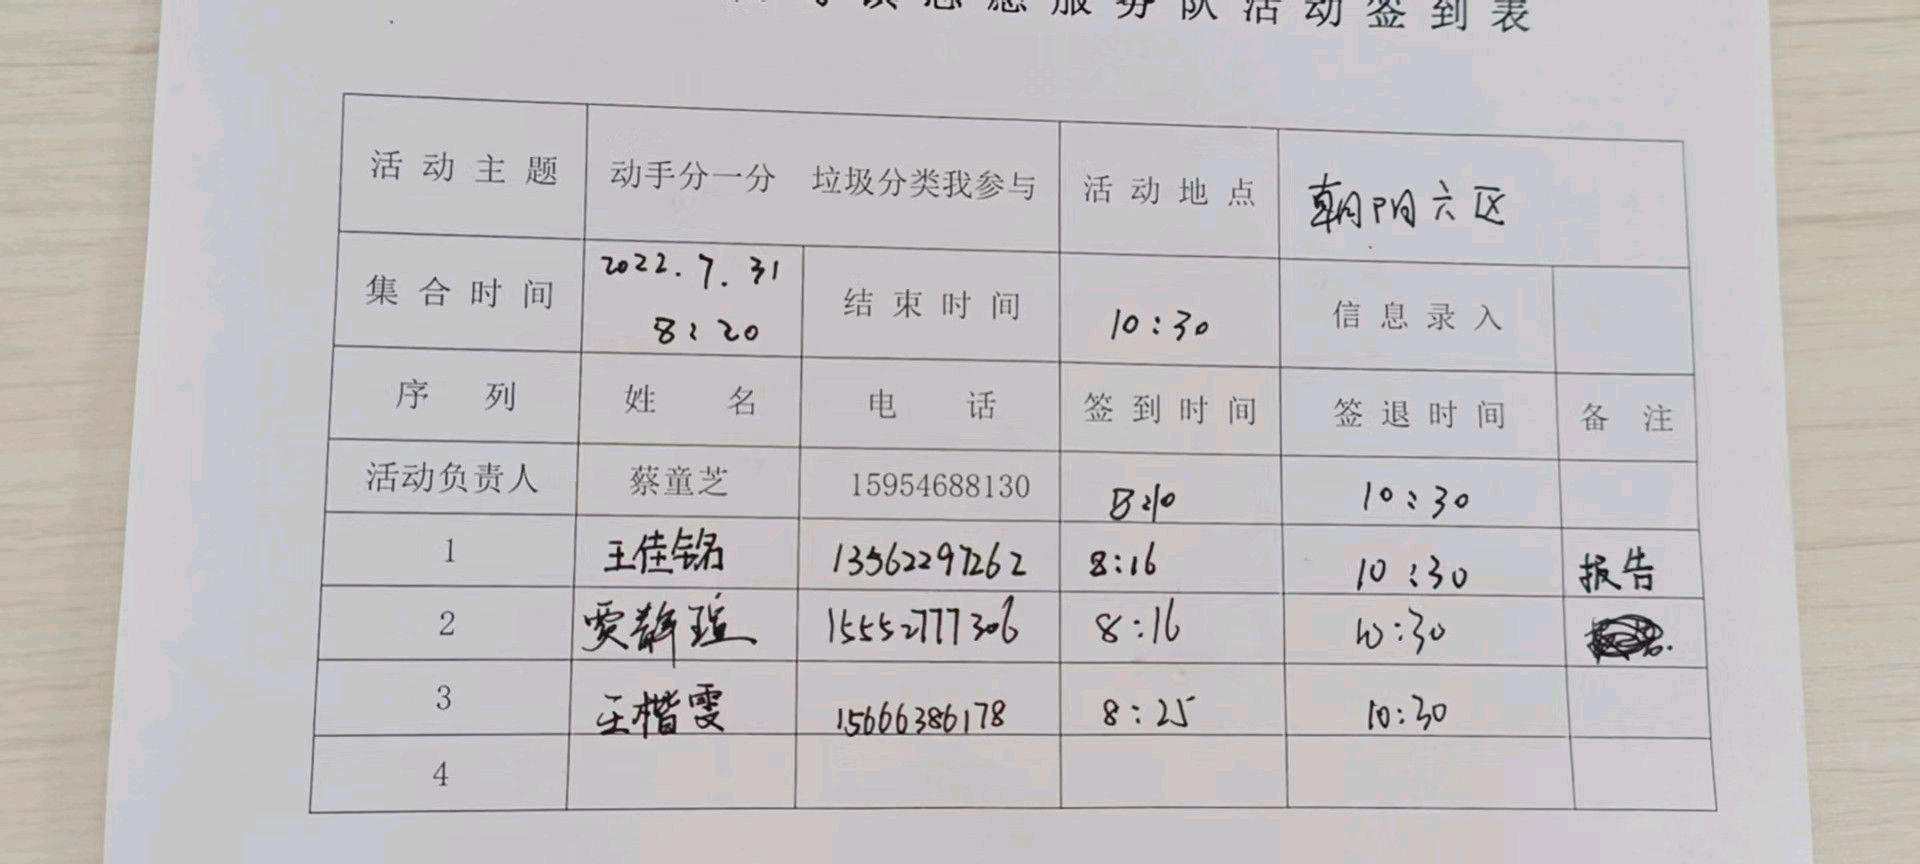 志愿服务队活动签到表
活动主题 动手分一分 垃圾分类我参与 活动地点 朝阳六区
集合时间 2022.7.31 8:20 结束时间 10:30 信息录入
序列 姓名 电话 签到时间 签退时间 备注
活动负责人 蔡童芝 15954688130 8:10 10:30
1 王佳铭 13562297262 8:16 10:30 报告
2 贾静瑄 15552777306 8:16 10:30
3 王楷雯 15666386178 8:25 10:30
4